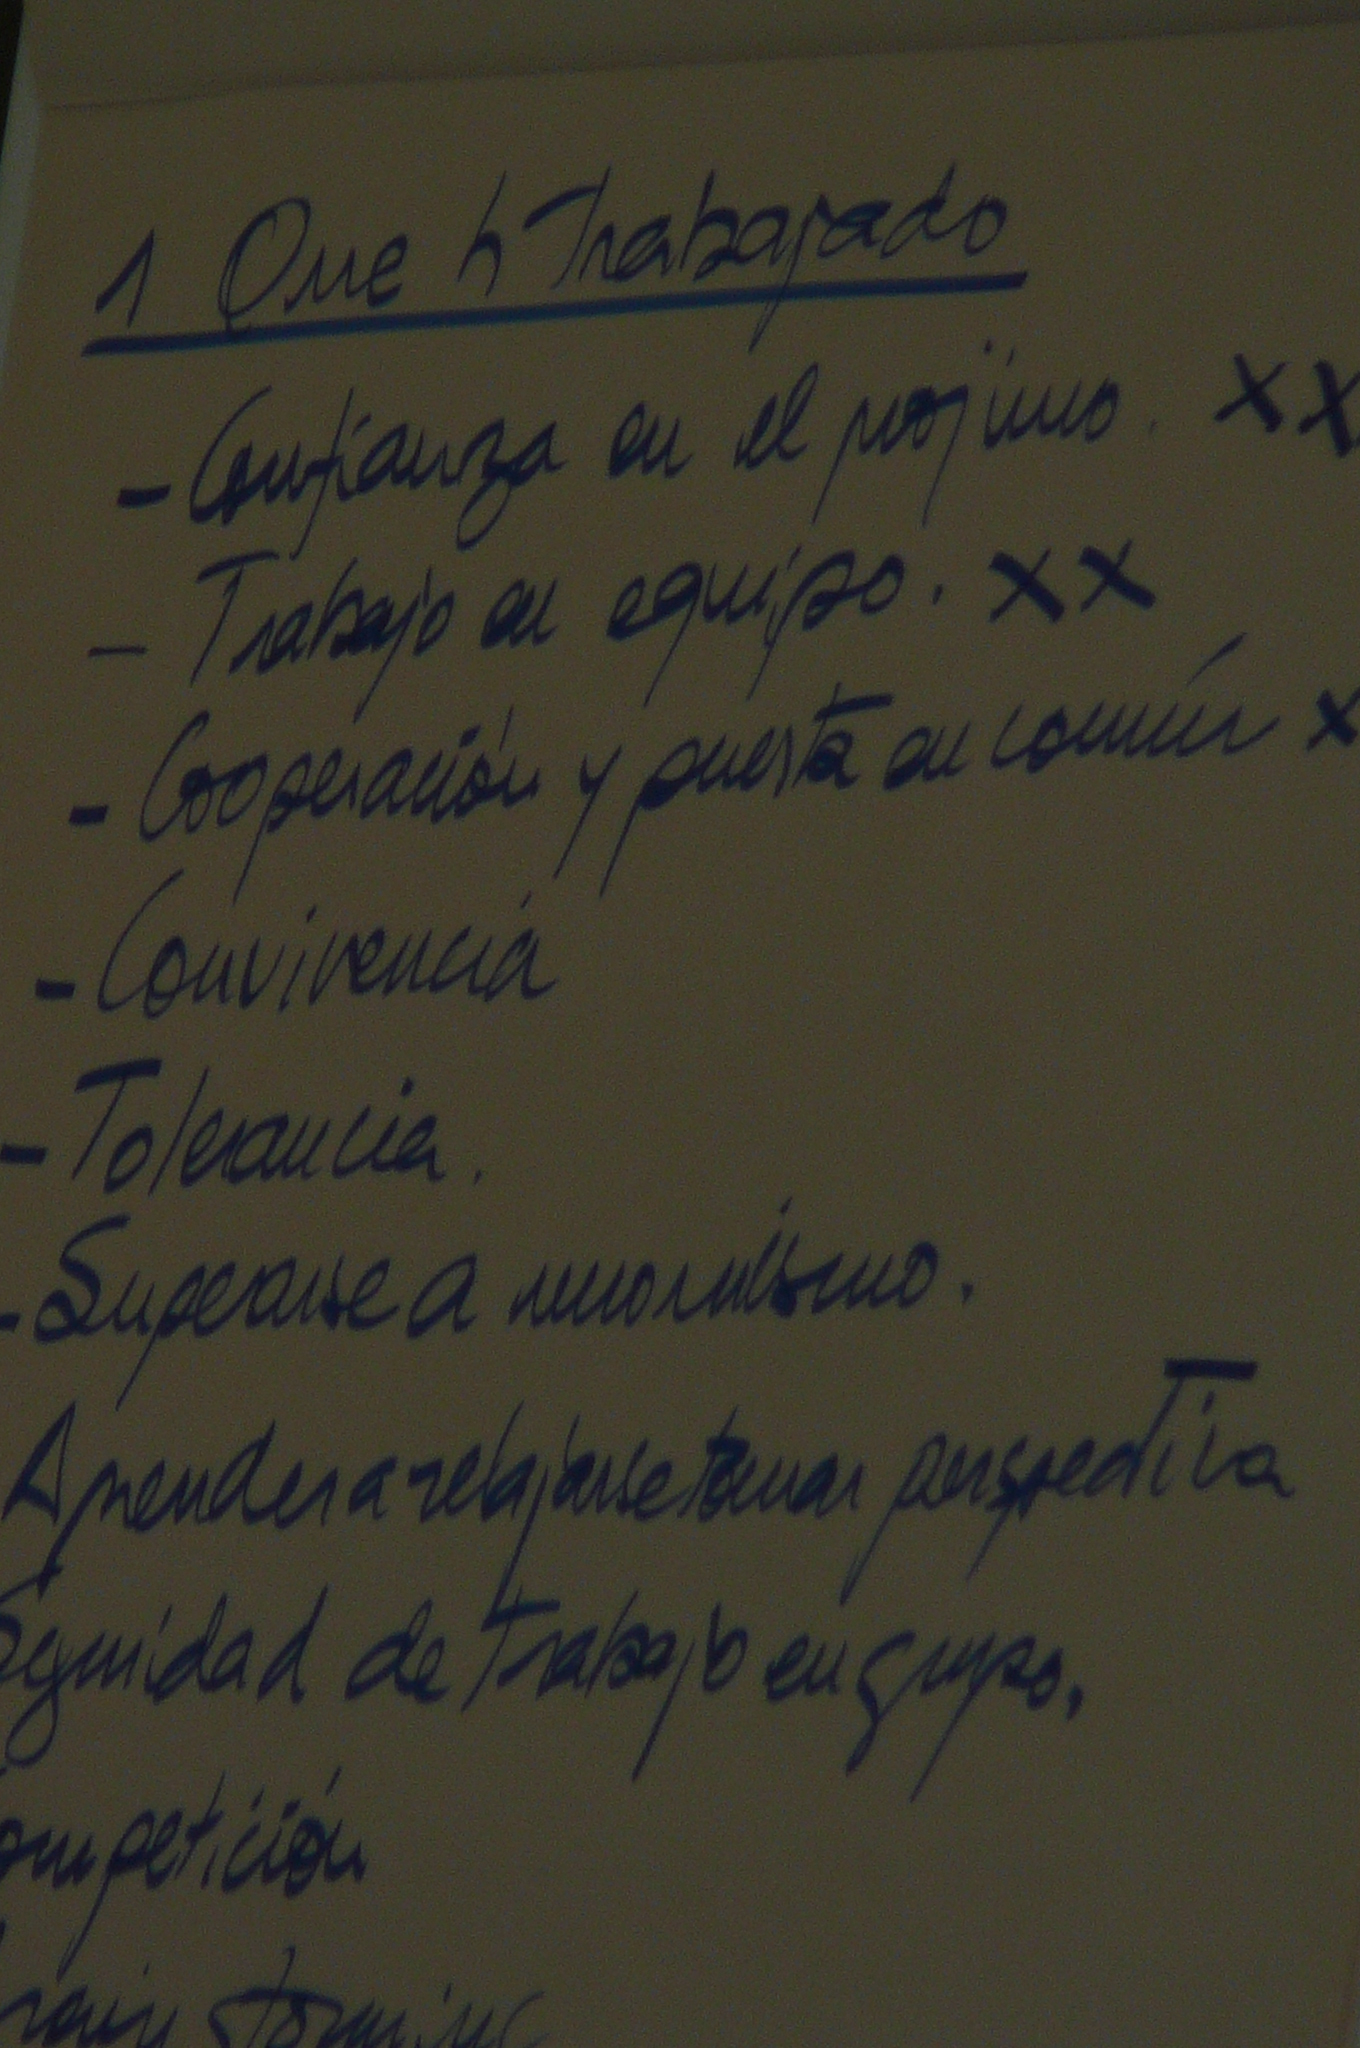 1 Que h Trabajado
- Confianza en el projimo. XX
- Trabajo en equipo. XX
- Cooperación y puesta en común X
- Convivencia
- Tolerancia.
- Superarse a unomismo.
Aprender a relajarse tomar perspectiva
Seguridad de trabajo en grupo.
ompetición